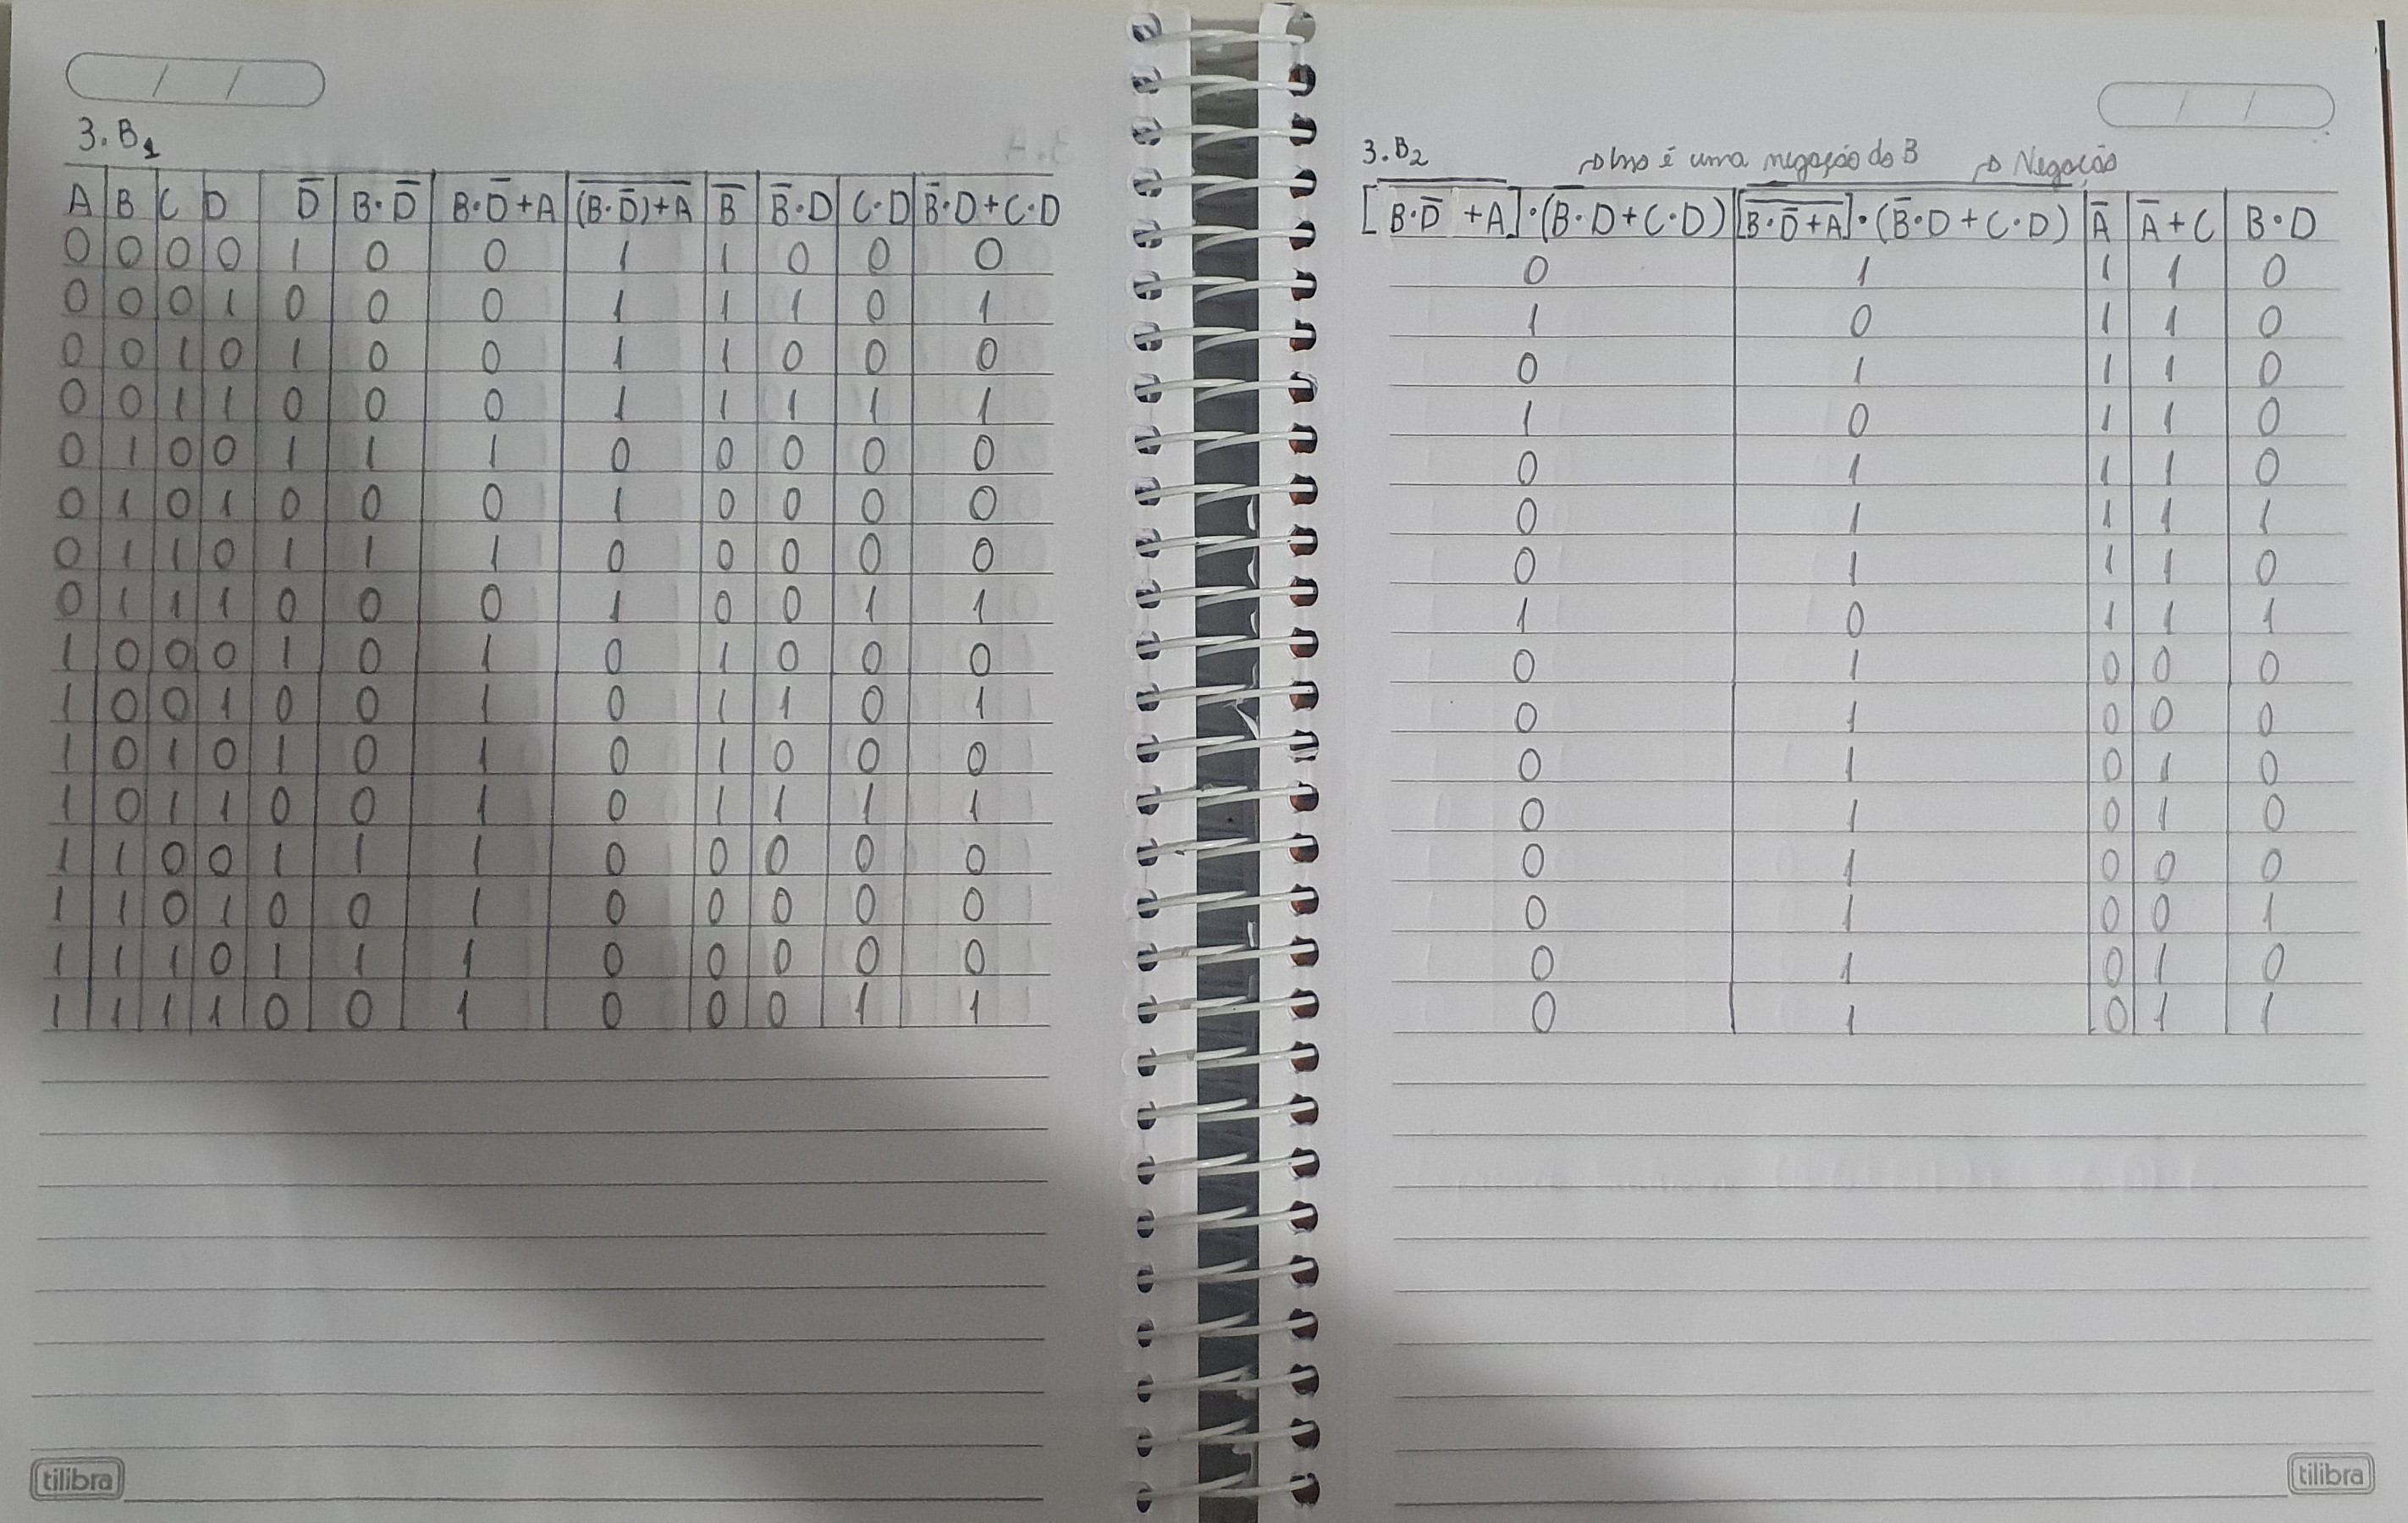 / /
3.B₁
A B C D D̅ B·D̅ B·D̅+A (B·D̅)+A̅ B̅ B̅·D C·D B̅·D+C·D
0 0 0 0 1 0 0 1 1 0 0 0
0 0 0 1 0 0 0 1 1 1 0 1
0 0 1 0 1 0 0 1 1 0 0 0
0 0 1 1 0 0 0 1 1 1 1 1
0 1 0 0 1 1 1 0 0 0 0 0
0 1 0 1 0 0 0 1 0 0 0 0
0 1 1 0 1 1 1 0 0 0 0 0
0 1 1 1 0 0 0 1 0 0 1 1
1 0 0 0 1 0 1 0 1 0 0 0
1 0 0 1 0 0 1 0 1 1 0 1
1 0 1 0 1 0 1 0 1 0 0 0
1 0 1 1 0 0 1 0 1 1 1 1
1 1 0 0 1 1 1 0 0 0 0 0
1 1 0 1 0 0 1 0 0 0 0 0
1 1 1 0 1 1 1 0 0 0 0 0
1 1 1 1 0 0 1 0 0 0 1 1
tilibra
/ /
3.B₂ é uma negação do B Negação
[B·D̅ +A]·(B̅·D+C·D) [B·D̅+A]·(B̅·D+C·D) A̅ A̅+C B·D
0 1 1 1 0
1 0 1 1 0
0 1 1 1 0
1 0 1 1 0
0 1 1 1 0
0 1 1 1 1
0 1 1 1 0
1 0 1 1 1
0 1 0 0 0
0 1 0 0 0
0 1 0 1 0
0 1 0 1 0
0 1 0 0 0
0 1 0 0 1
0 1 0 1 0
0 1 0 1 1
tilibra